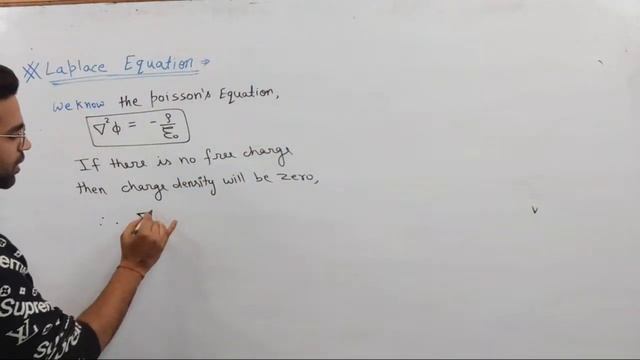 ※ Laplace Equation →
We know the poisson's Equation,
∇²φ = - ρ/ε₀
If there is no free charge
then charge density will be zero,
∴ ∇
Supreme
Supreme